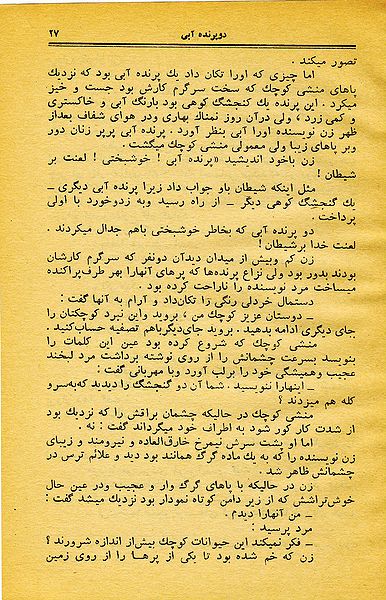 دوپرنده آبی
۲۷
تصور میکند .
اما چیزی که اورا تکان داد یك پرنده آبی بود که نزدیك
پاهای منشی کوچك که سخت سرگرم کارش بود جست و خیز
میکرد . این پرنده یك گنجشگ کوهی بود بارنگ آبی و خاکستری
و کمی زرد ، ولی درآن روز نمناك بهاری ودر هوای شفاف بعداز
ظهر زن نویسنده اورا آبی بنظر آورد . پرنده آبی پرپر زنان دور
وبر پاهای زیبا ولی معمولی منشی کوچك میگشت .
زن باخود اندیشید «پرنده آبی ! خوشبختی ! لعنت بر
شیطان !
مثل اینکه شیطان باو جواب داد زیرا پرنده آبی دیگری –
یك گنجشگ کوهی دیگر – از راه رسید وبه زدوخورد با اولی
پرداخت .
دو پرنده آبی که بخاطر خوشبختی باهم جدال میکردند .
لعنت خدا برشیطان !
زن کم وبیش از میدان دیدآن دونفر که سرگرم کارشان
بودند بدور بود ولی نزاع پرنده‌ها که پرهای آنهارا بهر طرف‌پراکنده
میساخت مرد نویسنده را ناراحت کرده بود .
دستمال خردلی رنگی را تکان‌داد و آرام به آنها گفت :
– دوستان عزیز کوچك من ، بروید واین نبرد کوچکتان را
جای دیگری ادامه بدهید . بروید جای‌دیگرباهم تصفیه حساب‌کنید .
منشی کوچك که شروع کرده بود عین این کلمات را
بنویسد بسرعت چشمانش را از روی نوشته برداشت مرد لبخند
عجیب وهمیشگی خود را برلب آورد وبا مهربانی گفت :
– اینهارا ننویسید . شما آن دو گنجشگ را دیدید که‌به‌سرو
کله هم میزدند ؟
منشی کوچك در حالیکه چشمان براقش را که نزدیك بود
از شدت کار کور شود به اطراف خود میگرداند گفت : نه .
اما او پشت سرش نیمرخ خارق‌العاده و نیرومند و زیبای
زن نویسنده را که به یك ماده گرگ همانند بود دید و علائم ترس در
چشمانش ظاهر شد .
زن در حالیکه با پاهای گرگ وار و عجیب ودر عین حال
خوش‌تراشش که از زیر دامن کوتاه نمودار بود نزدیك میشد گفت :
– من آنهارا دیدم .
مرد پرسید :
– فکر نمیکند این حیوانات کوچك بیش‌از اندازه شرورند ؟
زن که خم شده بود تا یکی از پرهـا را از روی زمین